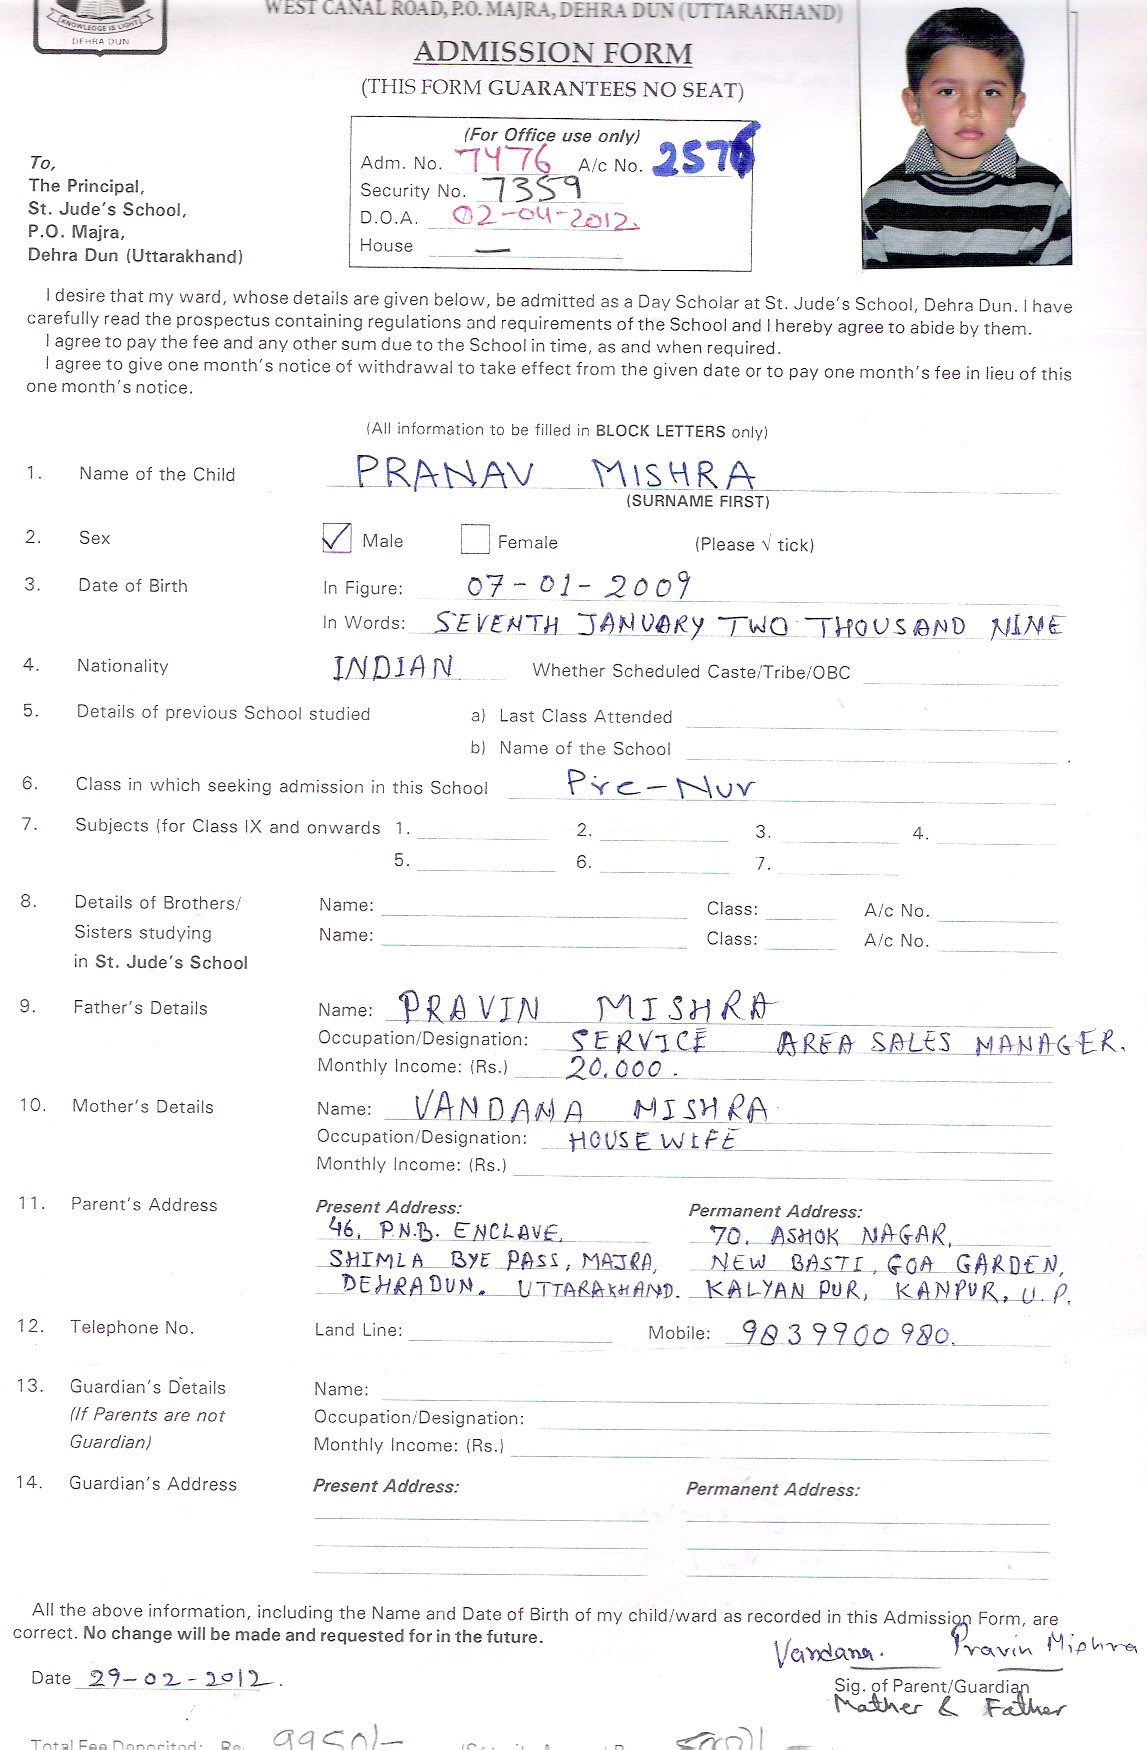 KNOWLEDGE IS LIGHT
DEHRA DUN
WEST CANAL ROAD, P.O. MAJRA, DEHRA DUN (UTTARAKHAND)
ADMISSION FORM
(THIS FORM GUARANTEES NO SEAT)
(For Office use only)
Adm. No. 7476 A/c No. 2576
Security No. 7359
D.O.A. 02-04-2012.
House —
To,
The Principal,
St. Jude's School,
P.O. Majra,
Dehra Dun (Uttarakhand)
I desire that my ward, whose details are given below, be admitted as a Day Scholar at St. Jude's School, Dehra Dun. I have
carefully read the prospectus containing regulations and requirements of the School and I hereby agree to abide by them.
I agree to pay the fee and any other sum due to the School in time, as and when required.
I agree to give one month's notice of withdrawal to take effect from the given date or to pay one month's fee in lieu of this
one month's notice.
(All information to be filled in BLOCK LETTERS only)
1. Name of the Child PRANAV MISHRA
(SURNAME FIRST)
2. Sex ✓ Male Female (Please √ tick)
3. Date of Birth In Figure: 07-01-2009
In Words: SEVENTH JANUARY TWO THOUSAND NINE
4. Nationality INDIAN Whether Scheduled Caste/Tribe/OBC
5. Details of previous School studied a) Last Class Attended
b) Name of the School
6. Class in which seeking admission in this School Pre-Nur
7. Subjects (for Class IX and onwards 1. 2. 3. 4.
5. 6. 7.
8. Details of Brothers/ Name: Class: A/c No.
Sisters studying Name: Class: A/c No.
in St. Jude's School
9. Father's Details Name: PRAVIN MISHRA
Occupation/Designation: SERVICE AREA SALES MANAGER.
Monthly Income: (Rs.) 20.000.
10. Mother's Details Name: VANDANA MISHRA
Occupation/Designation: HOUSE WIFE
Monthly Income: (Rs.)
11. Parent's Address Present Address: Permanent Address:
46, P.N.B. ENCLAVE, 70, ASHOK NAGAR,
SHIMLA BYE PASS, MAJRA, NEW BASTI, GOA GARDEN,
DEHRADUN. UTTARAKHAND. KALYAN PUR, KANPUR, U.P.
12. Telephone No. Land Line: Mobile: 9839900980.
13. Guardian's Details Name:
(If Parents are not Occupation/Designation:
Guardian) Monthly Income: (Rs.)
14. Guardian's Address Present Address: Permanent Address:
All the above information, including the Name and Date of Birth of my child/ward as recorded in this Admission Form, are
correct. No change will be made and requested for in the future.
Vandana. Pravin Mishra
Date 29-02-2012. Sig. of Parent/Guardian
Mather & Father
Total Fee Deposited: Rs 9950/-